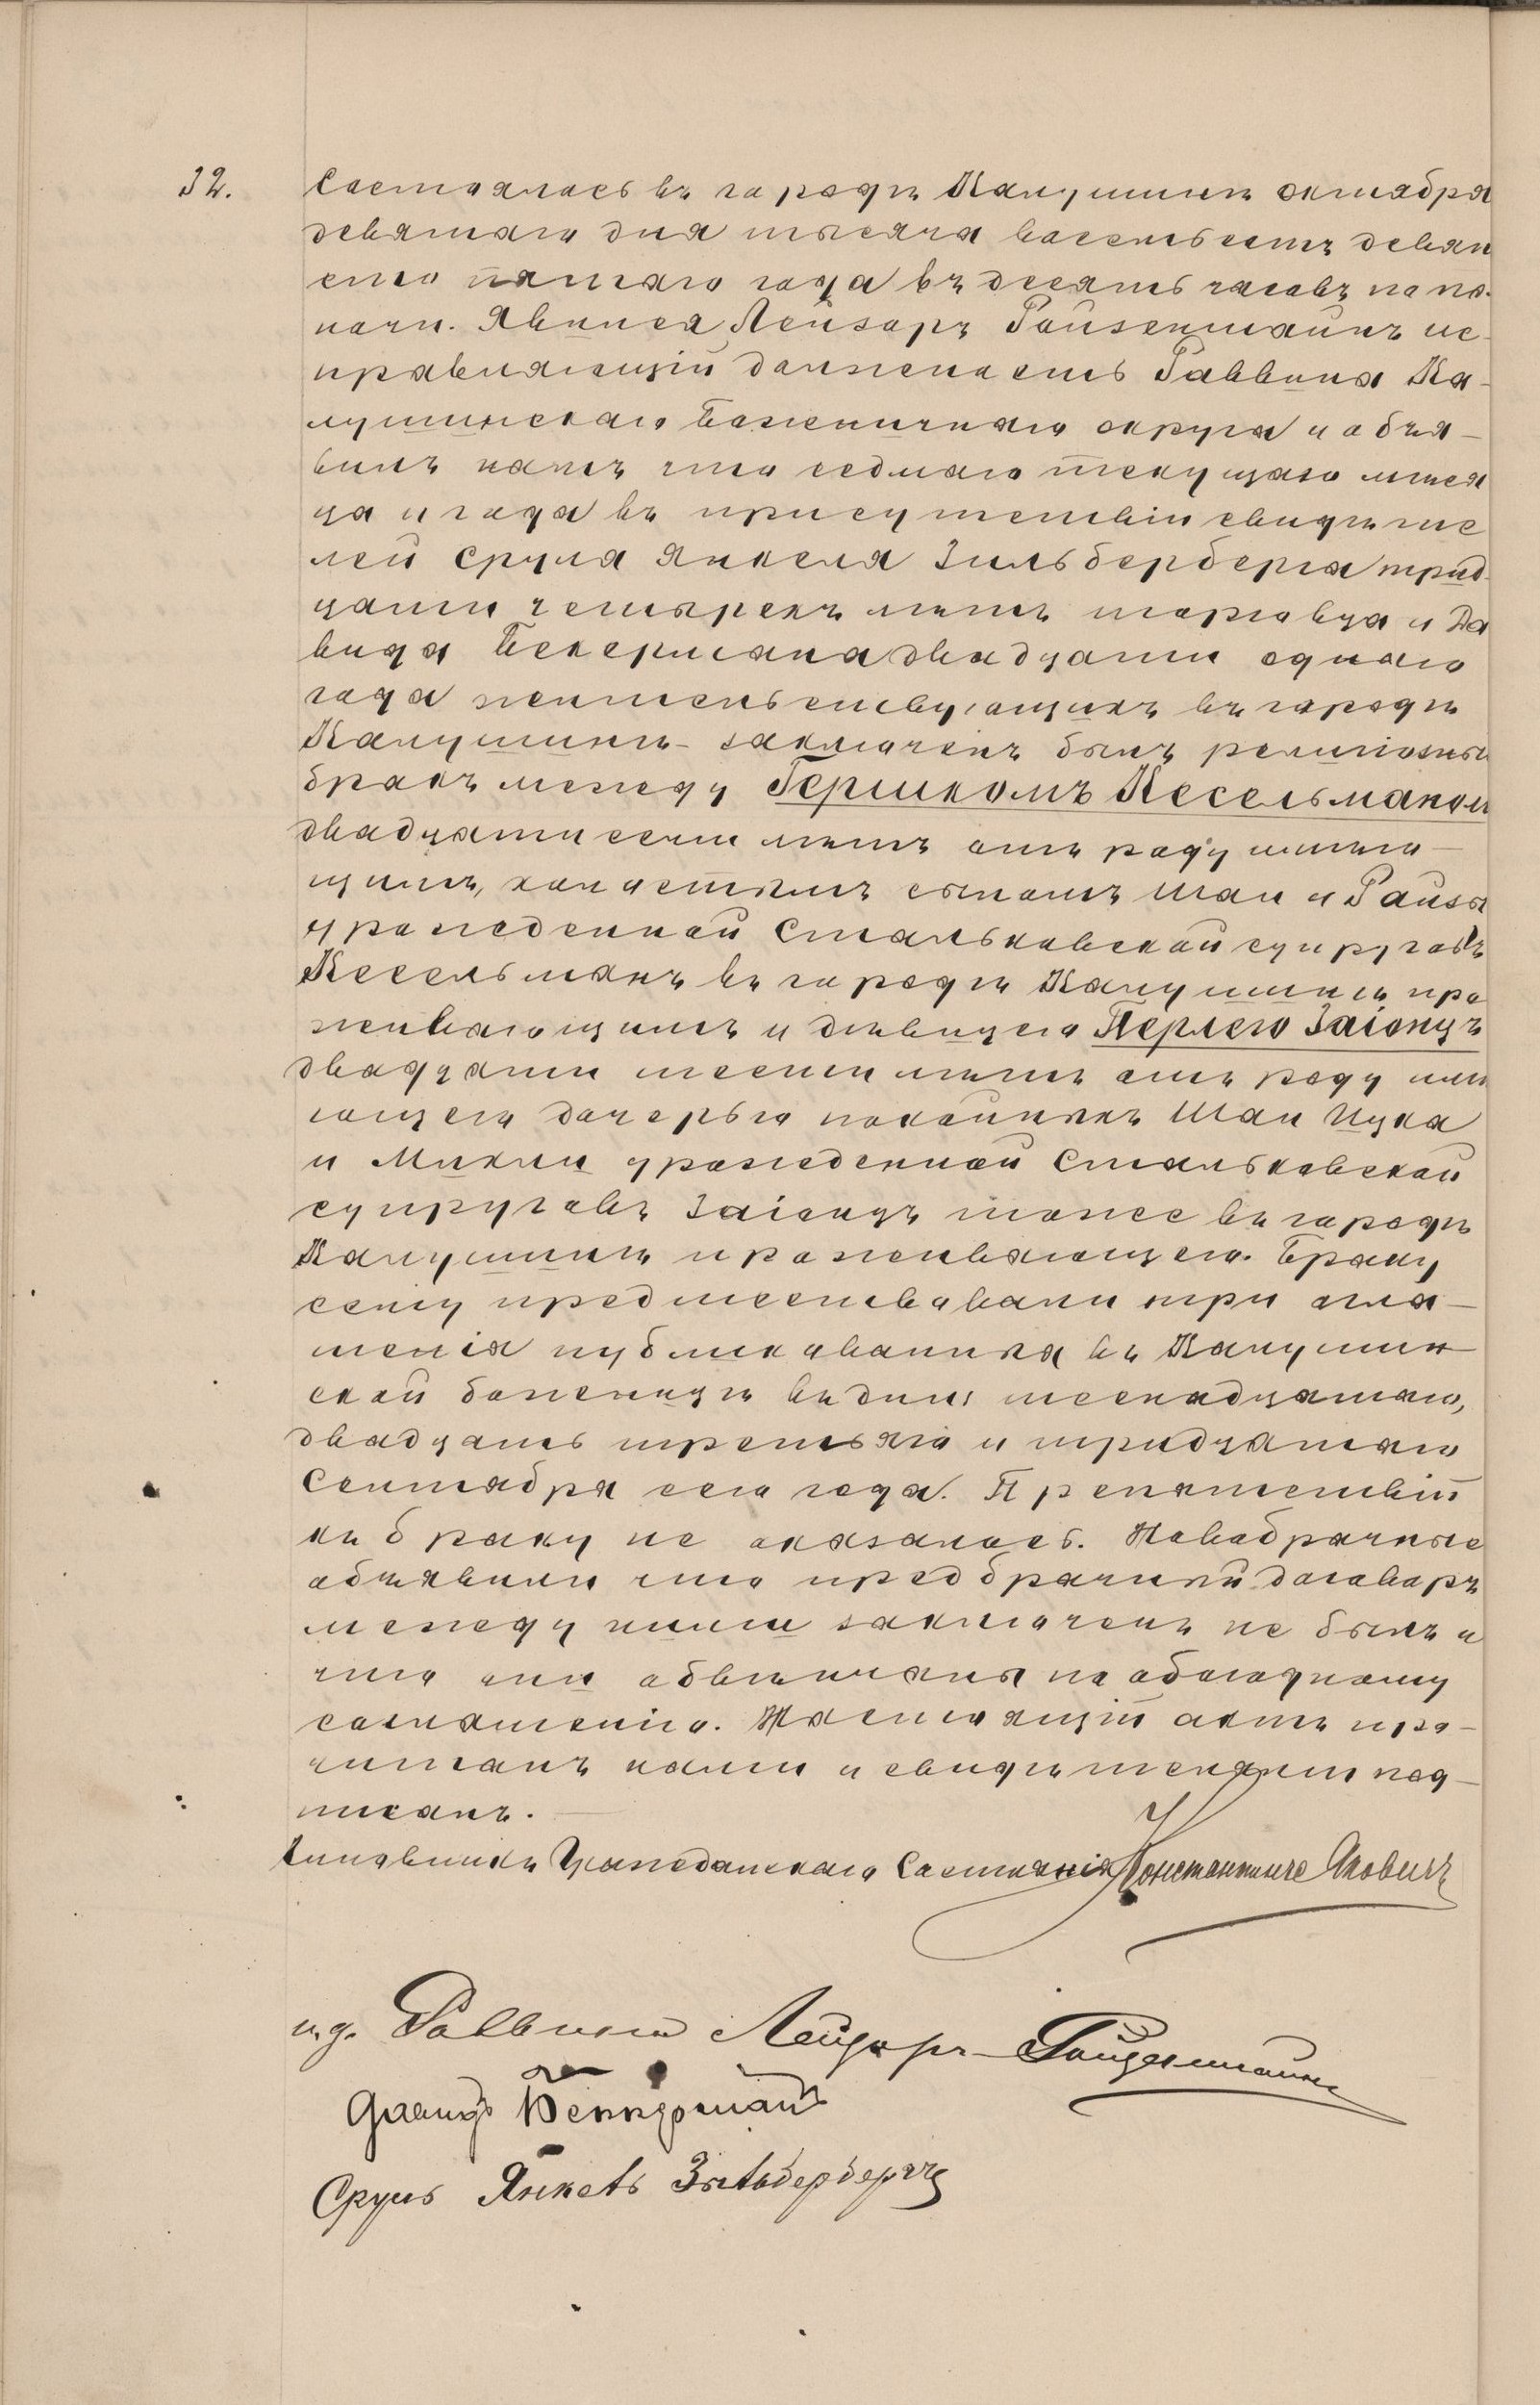 32.
Состоялось въ городѣ Калушинѣ октября
девятаго дня тысяча восемьсотъ девян
сто пятаго года въ десять часовъ по по-
ночи. Явился Лейзоръ Гойзенштайнъ ис-
правляющій должность Раввина Ка-
лушинскаго Божничнаго округа и объя-
вилъ намъ что седмаго текущаго мѣся
ца и года въ присутствіи свидѣте
лей Сруля Янкеля Зильберберга трид-
цати четырехъ лѣтъ торговца и Да
вида Бекермана двадцати одного
года жительствующихъ въ городѣ
Калушинѣ - заключенъ былъ религіозный
бракъ между Гершкомъ Кесельманомъ
двадцати семи лѣтъ отъ роду имѣю-
щимъ, холостымъ сыномъ Шаи и Райзы
урожденной Стальковской супруговъ
Кесельманъ въ городѣ Калушинѣ про
живающимъ и дѣвицею Перлею Заіонцъ
двадцати шести лѣтъ отъ роду имѣ
ющею дочерью покойныхъ Шаи Ицка
и Михли урожденной Стальковской
супруговъ Заіонцъ тоже въ городѣ
Калушинѣ проживающею. Браку
сему предшествовали три огла-
шенія публикованныя въ Калушин
ской божницѣ въ дни: шеснадцатаго,
двадцать третьяго и тридцатаго
Сентября сего года. Препятствій
къ браку не оказалось. Новобрачные
объявили что предбрачный договоръ
между ними заключенъ не былъ и
что они обвѣнчаны по обоюдному
соглашенію. Настоящій актъ про-
читанъ нами и свидѣтелями под-
писанъ.
Чиновникъ Гражданскаго Состоянія
и.д. Раввина Лейзоръ
Давидъ Беккерманъ
Сруль Янкель Зильбербергъ